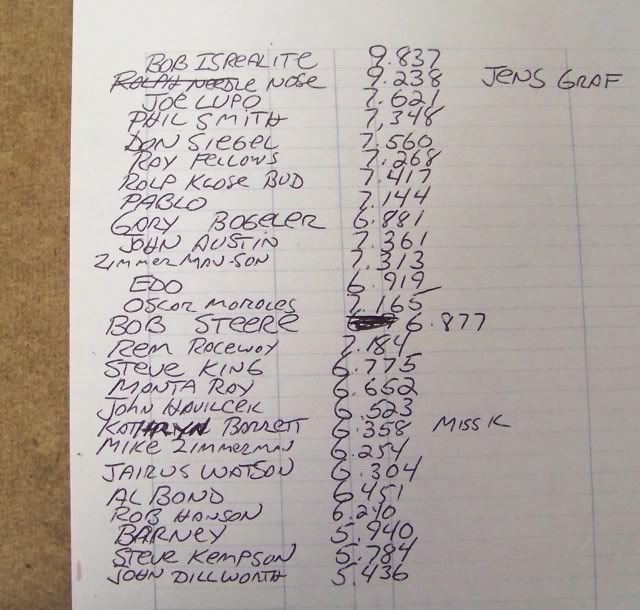 BOB ISREALITE 9.837
RALPH NEETLE NOSE 9.238 JENS GRAF
JOE LUPO 7.621
PHIL SMITH 7.348
DON SIEGEL 7.560
RAY FELLOWS 7.268
RALP KLOSE BUD 7.417
PABLO 7.144
GARY BOGELER 6.881
JOHN AUSTIN 7.361
ZIMMERMAN-SON 7.313
EDO 6.919
OSCAR MORALES 7.165
BOB STEERE 6.877
REM RACEWAY 7.184
STEVE KING 6.775
MANTA RAY 6.652
JOHN HAVILCEK 6.523
KATHRYN BARRETT 6.358 MISS K
MIKE ZIMMERMAN 6.254
JAIRUS WATSON 6.304
AL BOND 6.451
ROB HANSON 6.240
BARNEY 5.940
STEVE KEMPSON 5.784
JOHN DILLWORTH 5.436